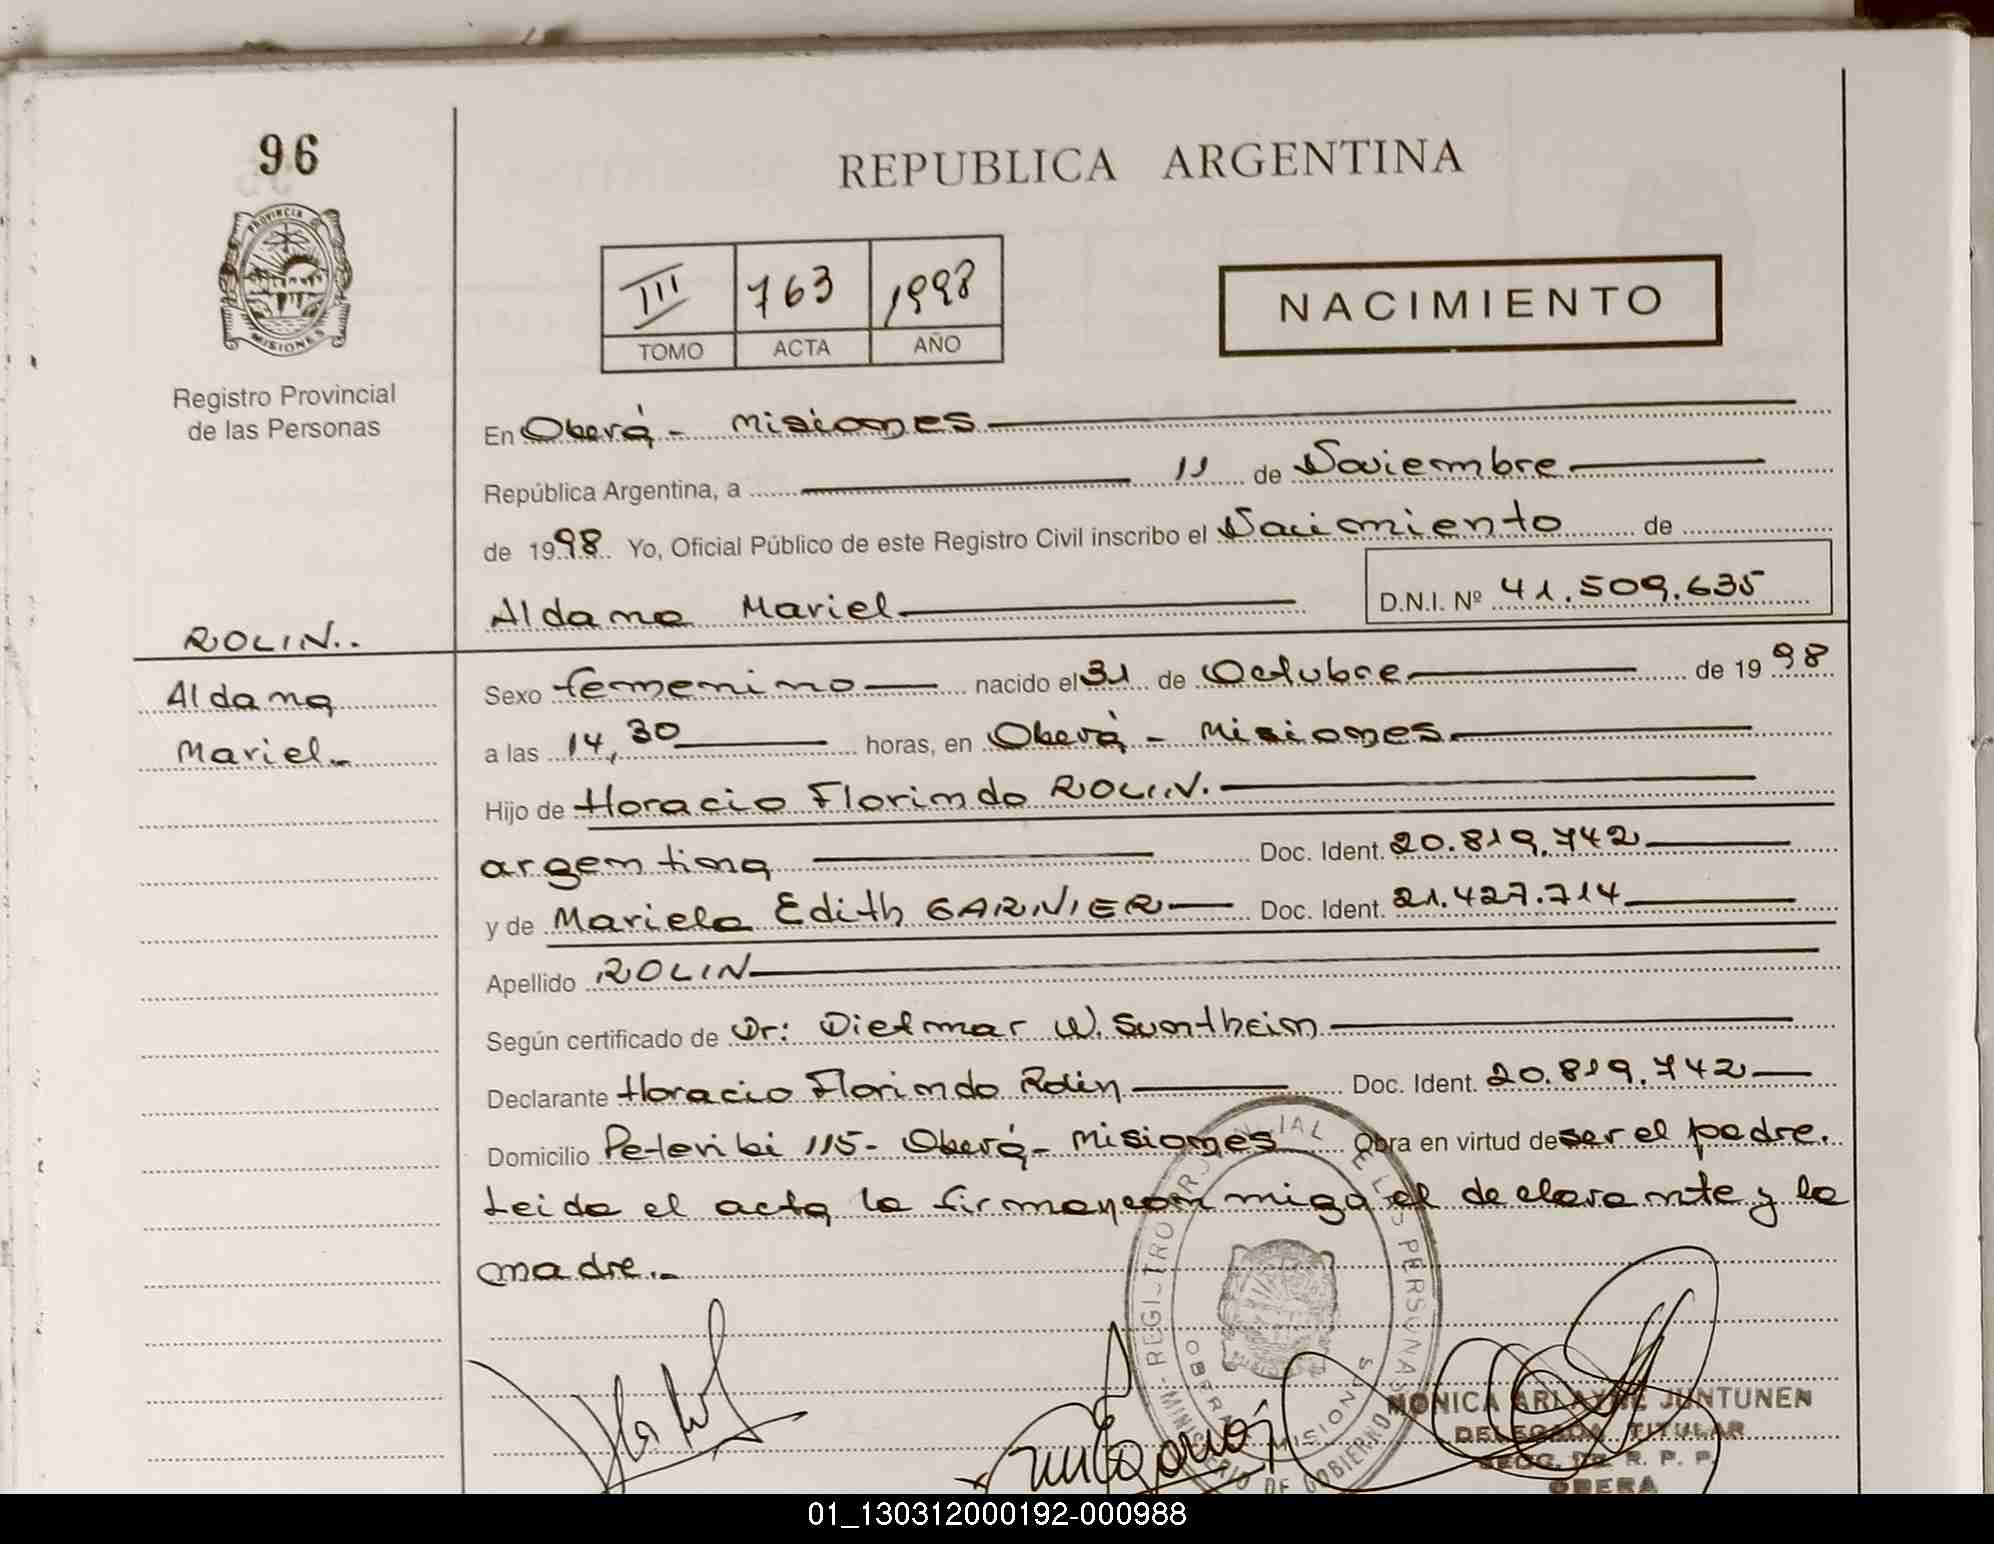 96
REPUBLICA ARGENTINA
PROVINCIA
MISIONES
III 763 1998
TOMO ACTA AÑO
NACIMIENTO
Registro Provincial
de las Personas
En Oberá - Misiones
República Argentina, a 11 de Noviembre
de 1998 Yo, Oficial Público de este Registro Civil inscribo el Nacimiento de
Aldana Mariel D.N.I. Nº 41.509.635
ROLIN..
Aldana
Mariel.-
Sexo femenino nacido el 31 de Octubre de 1998
a las 14,30 horas, en Oberá - Misiones
Hijo de Horacio Florindo ROLIN.
argentina Doc. Ident. 20.819.742
y de Mariela Edith GARNIER Doc. Ident. 21.427.714
Apellido ROLIN
Según certificado de Dr: Dietmar W. Suntheim
Declarante Horacio Florindo Rolin Doc. Ident. 20.819.742
Domicilio Peteribi 115- Oberá- Misiones Obra en virtud de ser el padre.
Leida el acta la firman conmigo el declarante y la
madre.-
MONICA ARLAYNE JUNTUNEN
DELEGADA TITULAR
SECC. R. P. P.
OBERA
01_130312000192-000988